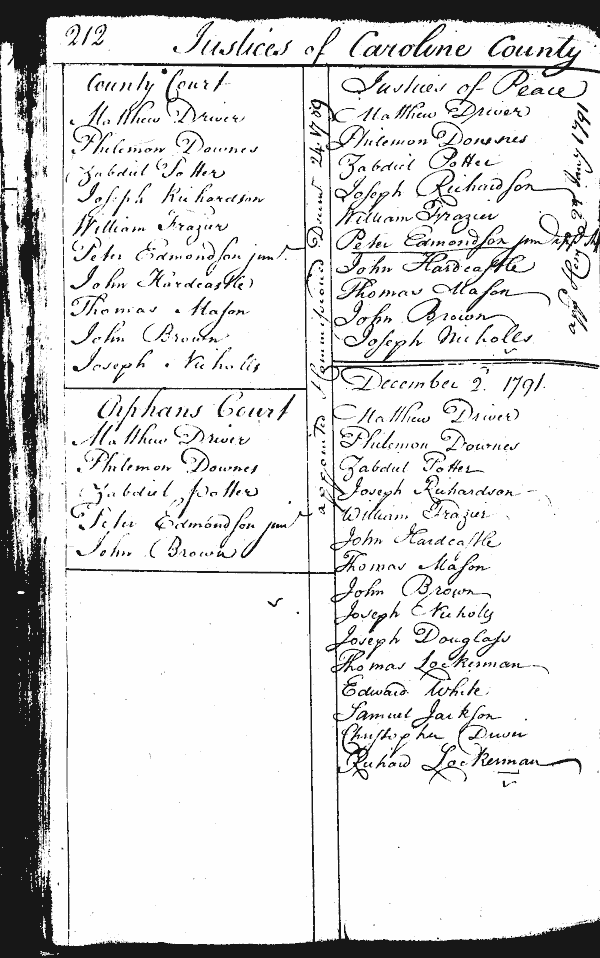 212
Justices of Caroline County
County Court
Matthew Driver
Philemon Downes
Zabdiel Potter
Joseph Richardson
William Frazier
Peter Edmondson junr
John Hardcastle
Thomas Mason
John Brown
Joseph Nicholls
Orphans Court
Matthew Driver
Philemon Downes
Zabdiel Potter
Peter Edmondson junr
John Brown
appointed & Commissioned 24 1789
Justices of Peace
Matthew Driver
Philemon Downes
Zabdiel Potter
Joseph Richardson
William Frazier
Peter Edmondson jun
John Hardcastle
Thomas Mason
John Brown
Joseph Nicholls
1791
December 2d. 1791.
Matthew Driver
Philemon Downes
Zabdiel Potter
Joseph Richardson
William Frazier
John Hardcastle
Thomas Mason
John Brown
Joseph Nicholls
Joseph Douglass
Thomas Lockerman
Edward White
Samuel Jackson
Christopher Driver
Richard Lockerman